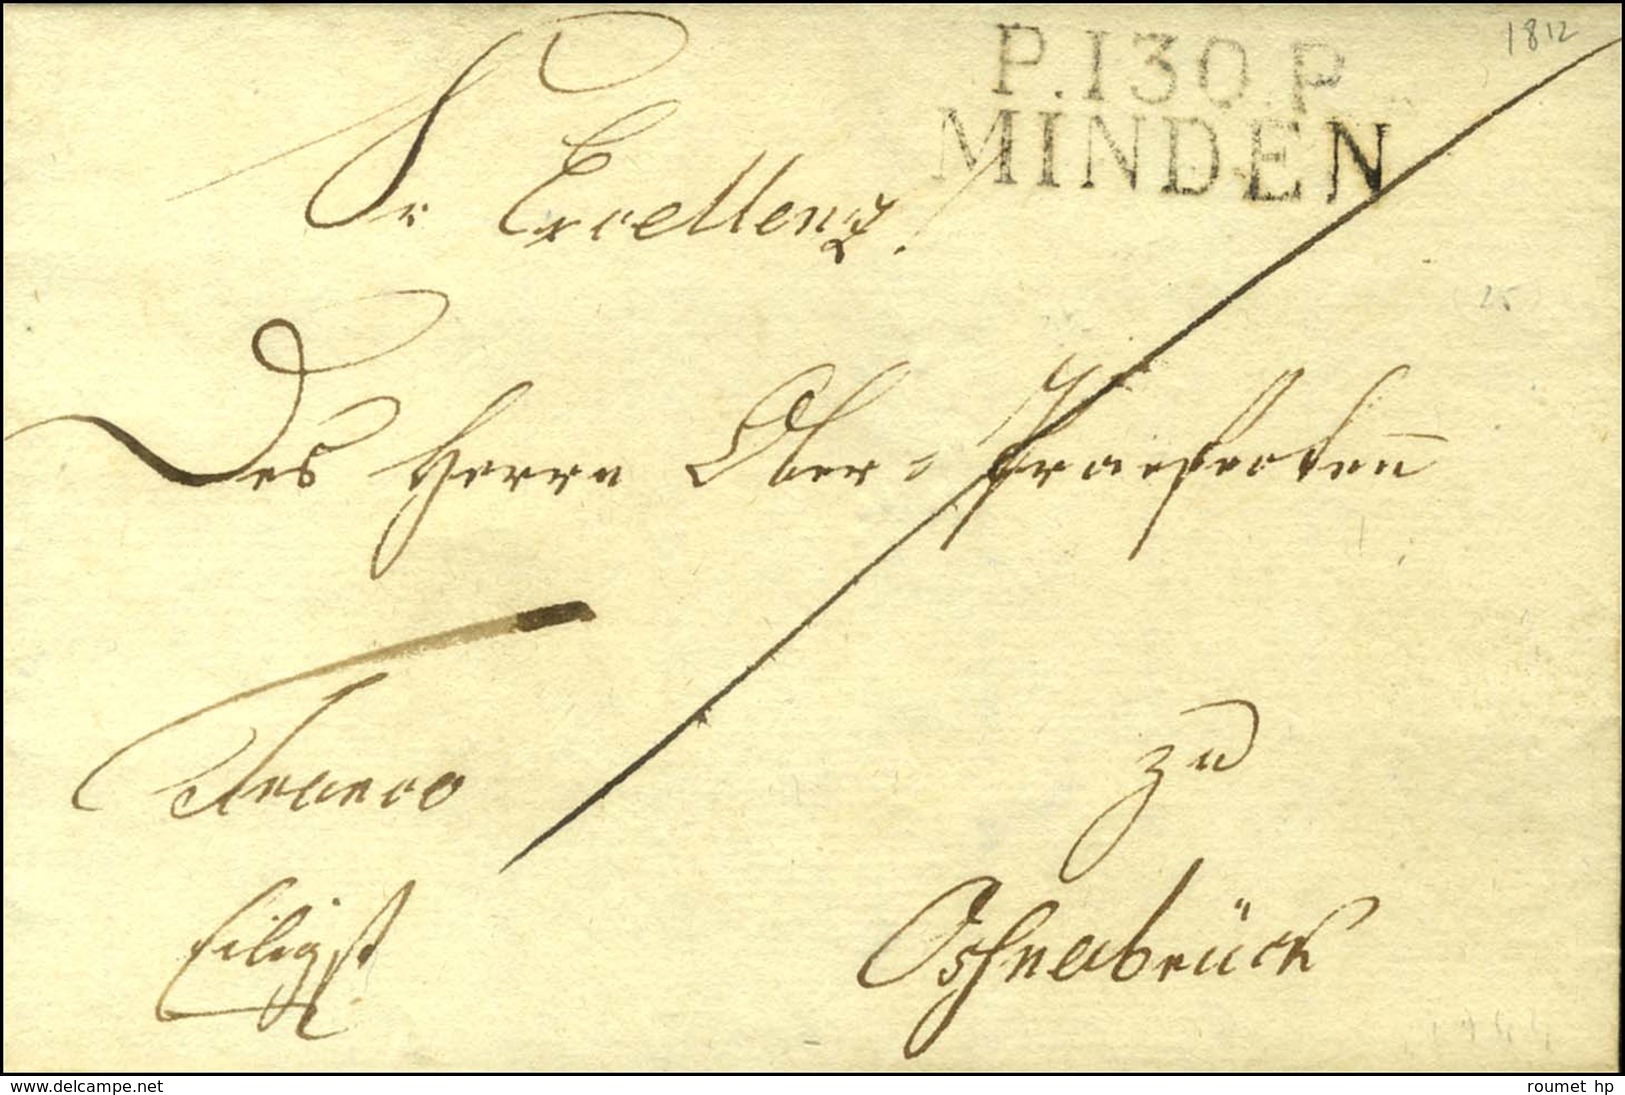 1812
P.130.P
MINDEN
Sr Excellenz!
25
Des Herrn Ober=Praefecten
Franco
zu
Eiligst
Osnabrück
www.delcampe.net
roumet hp